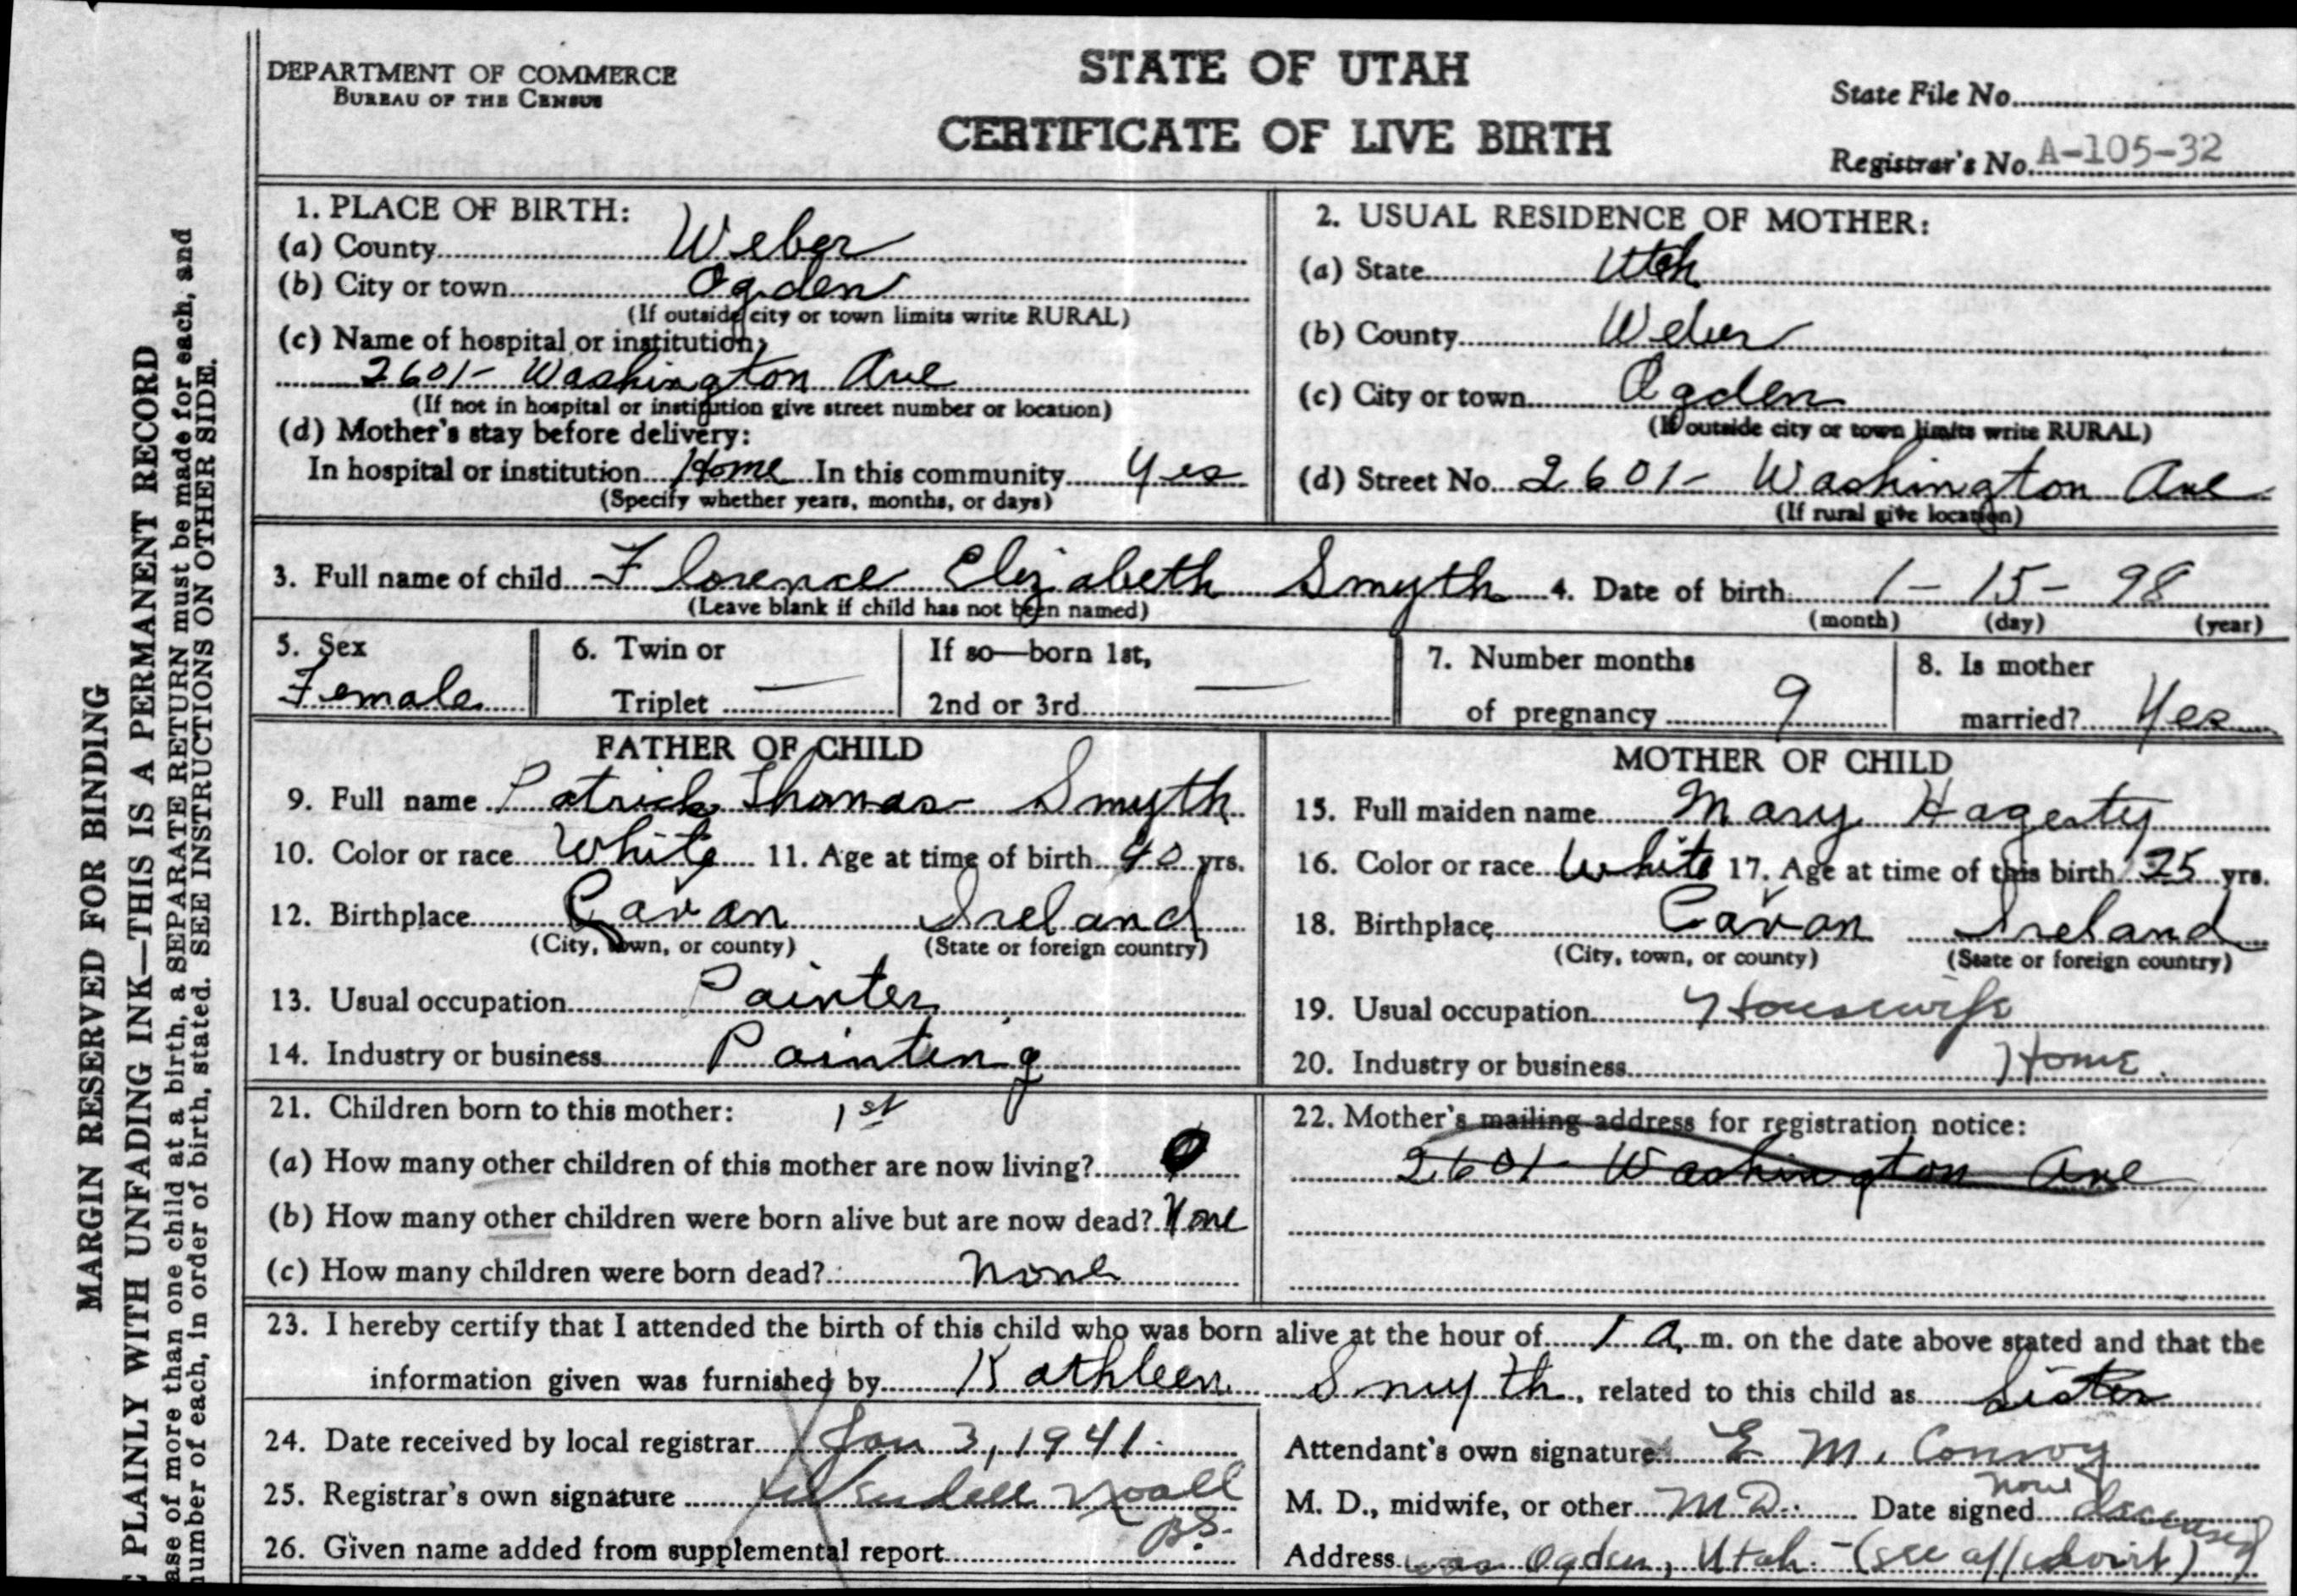 DEPARTMENT OF COMMERCE
BUREAU OF THE CENSUS
STATE OF UTAH
CERTIFICATE OF LIVE BIRTH
State File No.
Registrar's No. A-105-32
MARGIN RESERVED FOR BINDING
PLAINLY WITH UNFADING INK—THIS IS A PERMANENT RECORD
ase of more than one child at a birth, a SEPARATE RETURN must be made for each, and
number of each, in order of birth, stated. SEE INSTRUCTIONS ON OTHER SIDE.
1. PLACE OF BIRTH:
(a) County Weber
(b) City or town Ogden
(If outside city or town limits write RURAL)
(c) Name of hospital or institution:
2601- Washington Ave
(If not in hospital or institution give street number or location)
(d) Mother's stay before delivery:
In hospital or institution Home In this community Yes
(Specify whether years, months, or days)
2. USUAL RESIDENCE OF MOTHER:
(a) State Utah
(b) County Weber
(c) City or town Ogden
(If outside city or town limits write RURAL)
(d) Street No. 2601- Washington Ave
(If rural give location)
3. Full name of child Florence Elizabeth Smyth 4. Date of birth 1-15-98
(Leave blank if child has not been named) (month) (day) (year)
5. Sex
Female
6. Twin or
Triplet —
If so—born 1st,
2nd or 3rd —
7. Number months
of pregnancy 9
8. Is mother
married? Yes
FATHER OF CHILD
9. Full name Patrick Thomas Smyth
10. Color or race White 11. Age at time of birth 40 yrs.
12. Birthplace Cavan Ireland
(City, town, or county) (State or foreign country)
13. Usual occupation Painter
14. Industry or business Painting
MOTHER OF CHILD
15. Full maiden name Mary Hagerty
16. Color or race White 17. Age at time of this birth 25 yrs.
18. Birthplace Cavan Ireland
(City, town, or county) (State or foreign country)
19. Usual occupation Housewife
20. Industry or business Home
21. Children born to this mother: 1st
(a) How many other children of this mother are now living? 0
(b) How many other children were born alive but are now dead? None
(c) How many children were born dead? None
22. Mother's mailing address for registration notice:
2601 Washington Ave
23. I hereby certify that I attended the birth of this child who was born alive at the hour of 1 a. m. on the date above stated and that the
information given was furnished by Kathleen Smyth, related to this child as Sister
24. Date received by local registrar Jan 3, 1941
25. Registrar's own signature Noall
B.S.
26. Given name added from supplemental report
Attendant's own signature E. M. Conroy
M. D., midwife, or other M.D. Date signed now deceased
Address was Ogden, Utah - (see affidavit)